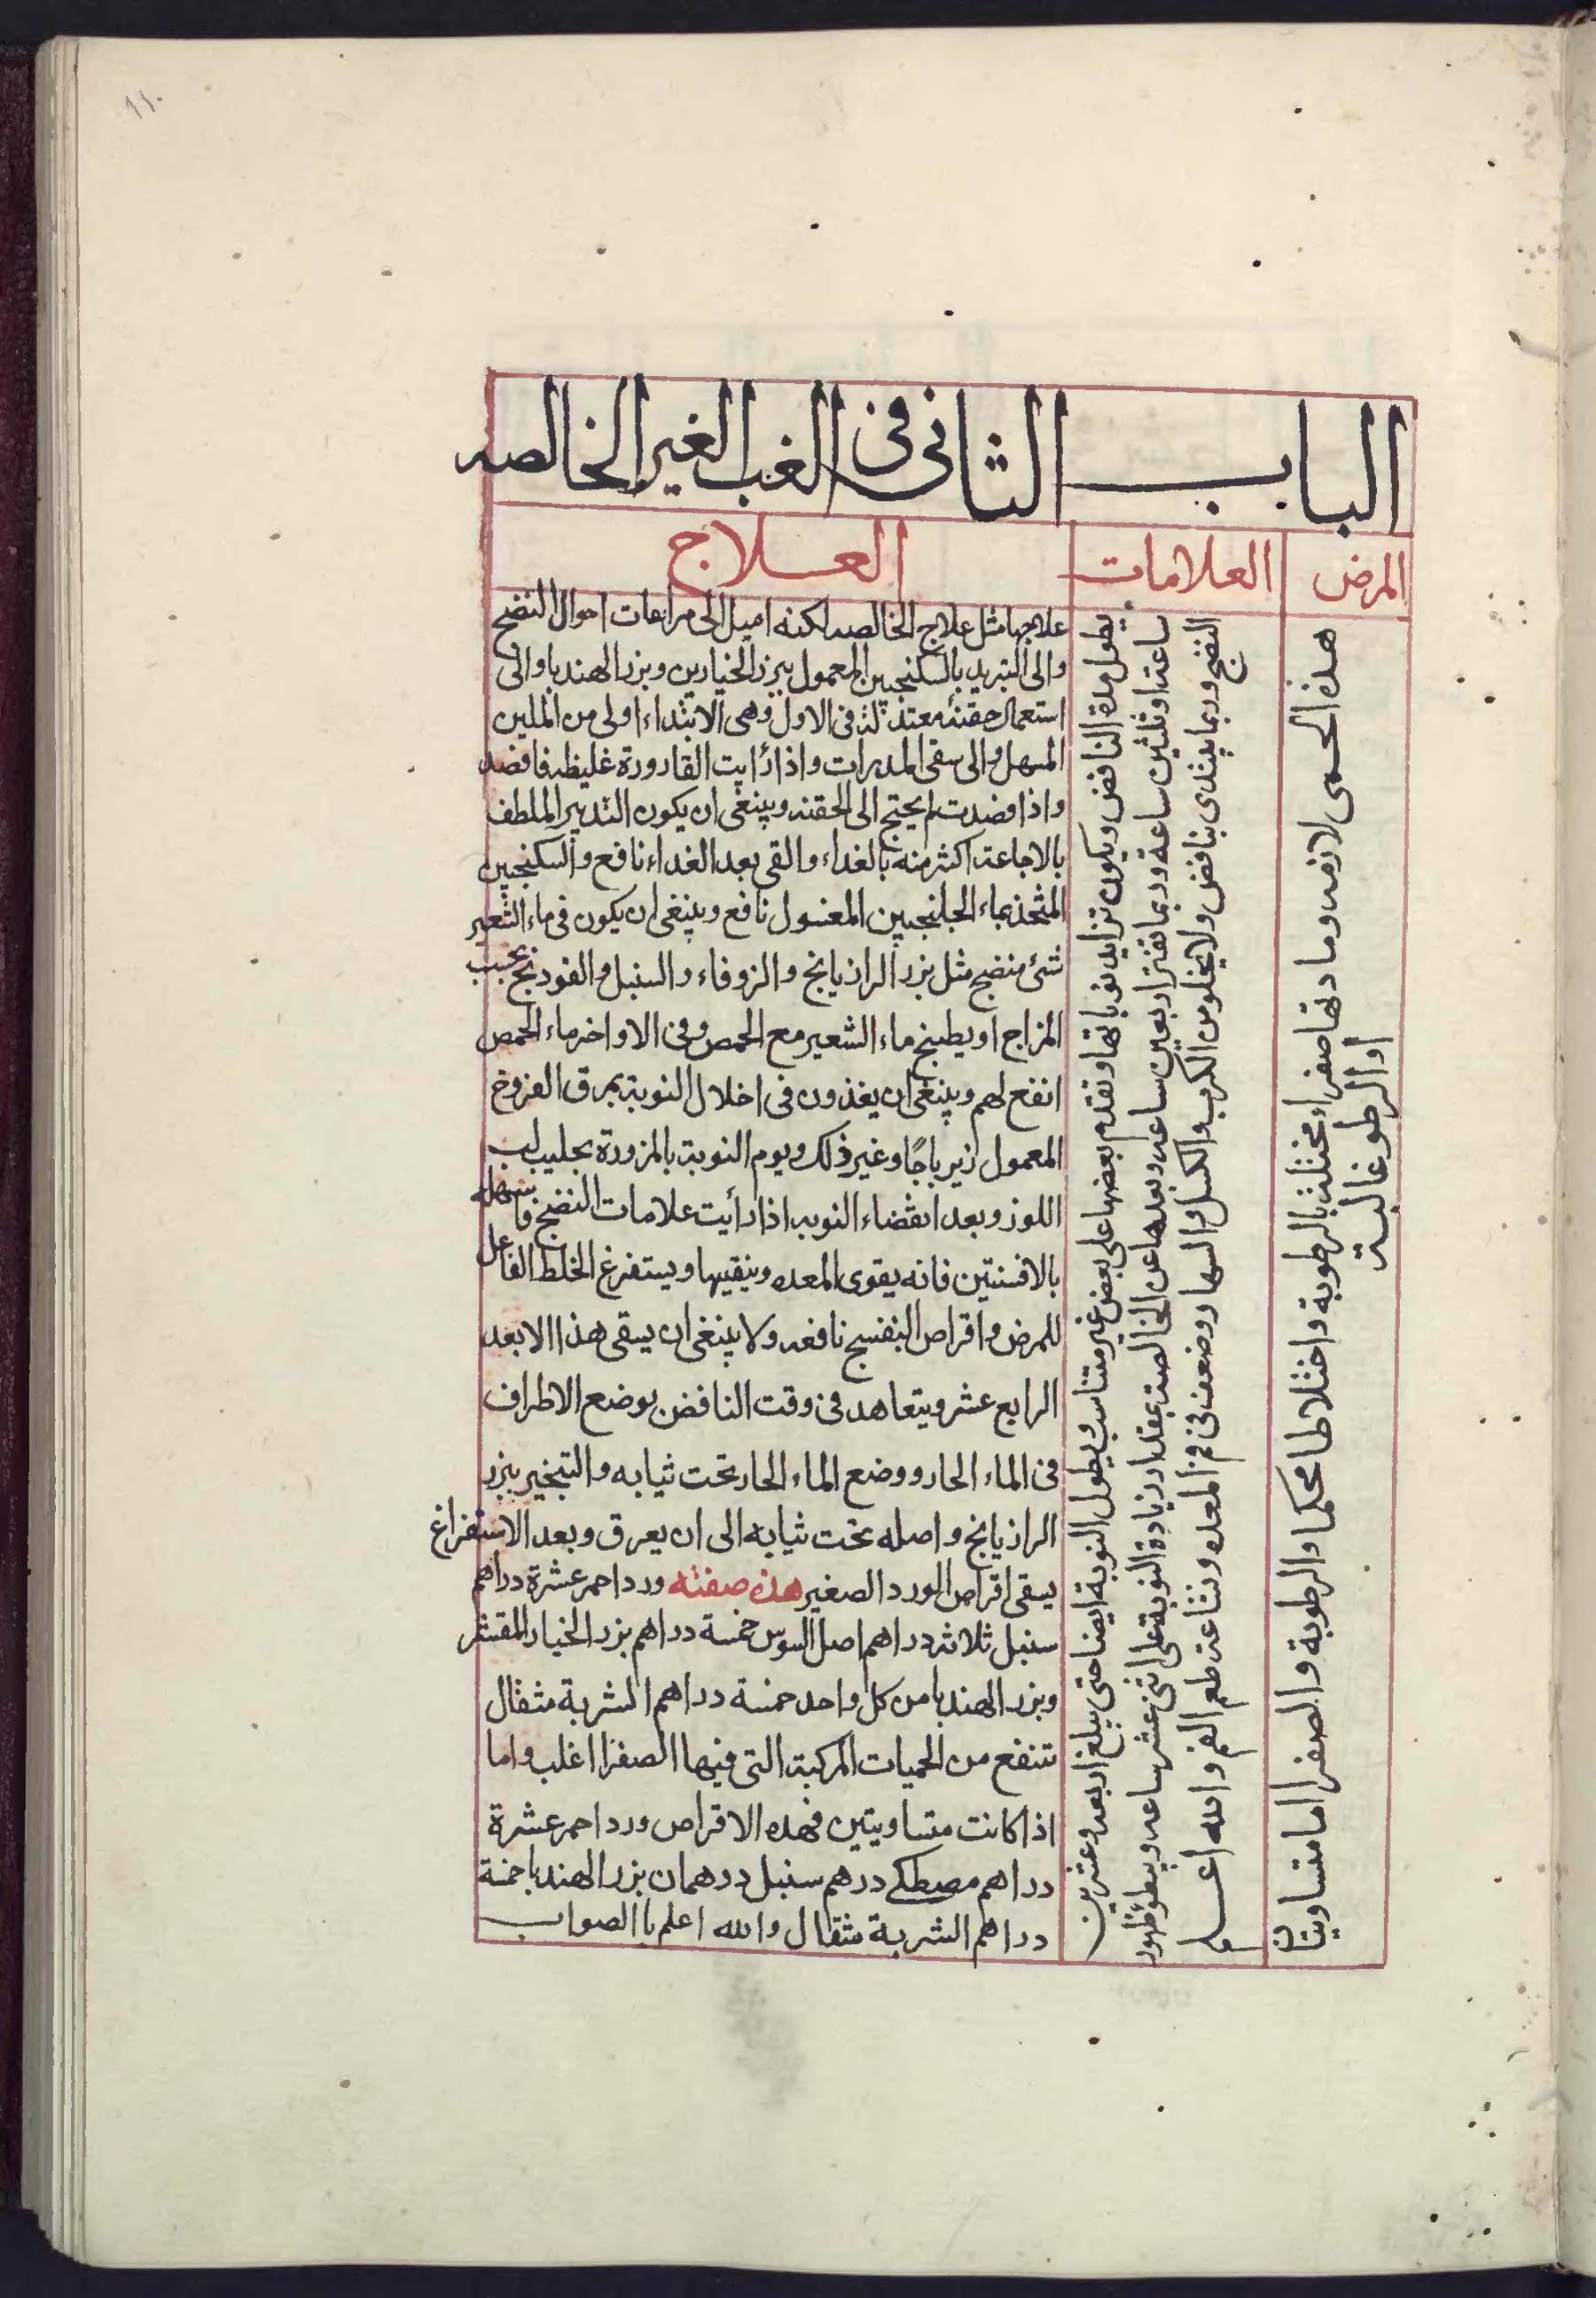 ١١٠
الباب الثانى فى الغب الغير الخالصه
المرض
العلامات
العلاج
هذه الحمى لازمه ومادتها صفراء مختلطة بالرطوبة واختلاطا محكما والرطوبة والصفرا اما متساويتان
او الرطوبة غالبة
يطول مدة النافض ويكون تزايد نوباتها وتقدم بعضها على بعض غير متناسب ويطول النوبة ايضا حتى يبلغ اربعه وعشرين
ساعة او ثلثين ساعة وربما تفتر اربعين ساعه وبعدها عن الخالصة بمقدار زيادة النوبة على اثنى عشر ساعه ويبطؤ ظهور
النضج وربما يبتدى بنافض ولا يخلو من الكرب والكسل والسهار وضعف فى فم المعده وبشاعة طعم الفم والله اعلم
علاجها مثل علاج الخالصه لكنه اميل الى مراعات احوال النضج
والى التبريد بالسكنجبين المعمول ببزر الخيارين وبزر الهندبا والى
استعمال حقنة معتدلة فى الاول وهى الابتداء اولى من الملين
المسهل والى سقى المدرات واذا رأيت القارورة غليظه فافصد
واذا فصدت لم يحتج الى الحقنه وينبغى ان يكون التدبير الملطف
بالاجاعة اكثر منه بالغداء والقى بعد الغداء نافع والسكنجبين
المتخذ بماء الجلنجبين المعسول نافع وينبغى ان يكون فى ماء الشعير
شئ منضج مثل بزر الرازيانج والزوفاء والسنبل والفودنج بحسب
المزاج او يطبخ ماء الشعير مع الحمص وفى الاواخر ماء الحمص
انفع لهم وينبغى ان يغذون فى اخلال النوبة بمرق الفروخ
المعمول زيرباجًا وغير ذلك ويوم النوبة بالمزورة بحليب لب
اللوز وبعد انقضاء النوبه اذا رأيت علامات النضج فاسهله
بالافسنتين فانه يقوى المعده وينقيها ويستفرغ الخلط الفاعل
للمرض واقراص البنفسج نافعه ولا ينبغى ان يسقى هذا الا بعد
الرابع عشر ويتعاهد فى وقت النافض بوضع الاطراف
فى الماء الحار ووضع الماء الحار تحت ثيابه والتبخير ببزر
الرازيانج واصله تحت ثيابه الى ان يعرق وبعد الاستفراغ
يسقى اقراص الورد الصغير هذه صفته ورد احمر عشرة دراهم
سنبل ثلاثة دراهم اصل السوس خمسة دراهم بزر الخيار المقشر
وبزر الهندبا من كل واحد خمسة دراهم الشربة مثقال
تنفع من الحميات المركبة التى فيها الصفرا اغلب واما
اذا كانت متساويتين فهذه الاقراص ورد احمر عشرة
دراهم مصطكى درهم سنبل درهمان بزر الهندبا خمسة
دراهم الشربة مثقال والله اعلم باالصواب